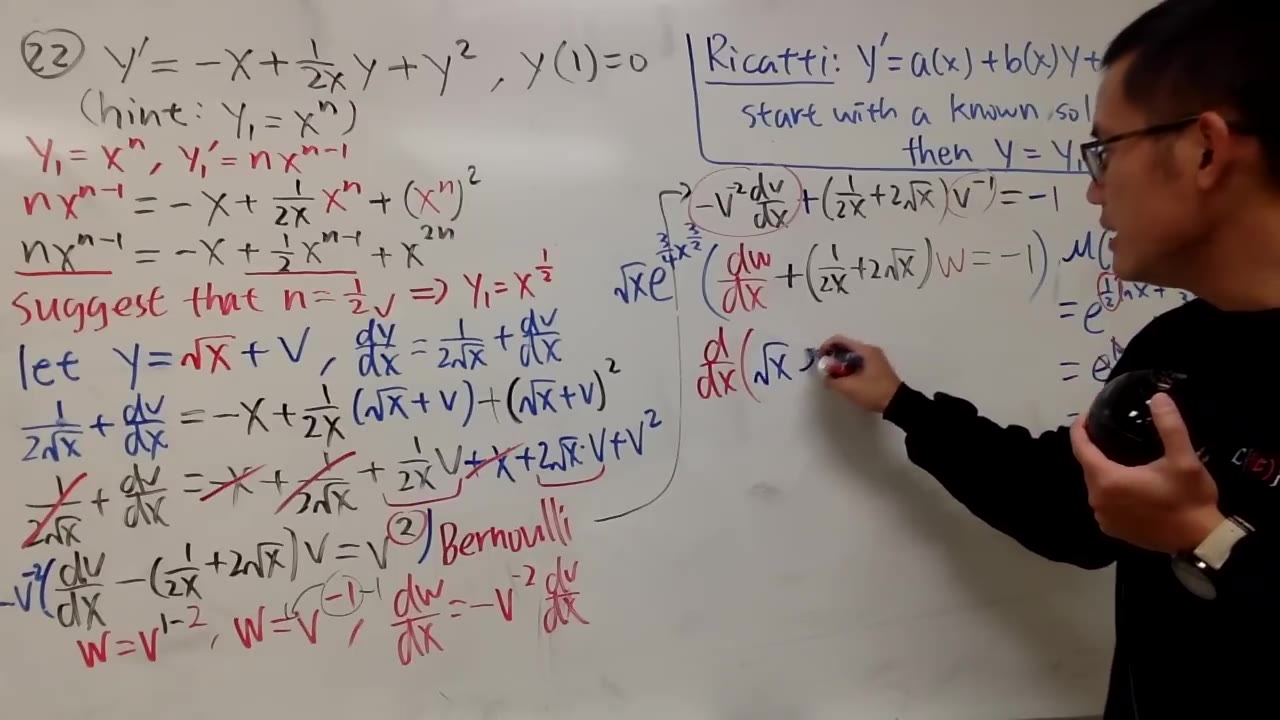 22 y' = -x + 1/2x y + y², y(1)=0
(hint: y₁ = xⁿ)
y₁ = xⁿ, y₁' = nxⁿ⁻¹
nxⁿ⁻¹ = -x + 1/2x xⁿ + (xⁿ)²
nxⁿ⁻¹ = -x + 1/2 xⁿ⁻¹ + x²ⁿ
suggest that n = 1/2 ✓ ⇒ y₁ = x^(1/2)
let y = √x + v, dy/dx = 1/2√x + dv/dx
1/2√x + dv/dx = -x + 1/2x (√x + v) + (√x + v)²
1/2√x + dv/dx = -x + 1/2√x + 1/2x v + x + 2√x·v + v²
-v⁻²( dv/dx - (1/2x + 2√x) v = v² ) Bernoulli
w = v¹⁻², w = v⁻¹, dw/dx = -v⁻² dv/dx
Ricatti: y' = a(x) + b(x)y +
start with a known sol
then y = y₁
-v⁻² dv/dx + (1/2x + 2√x) v⁻¹ = -1
√x e^(3/4 x^(3/2)) ( dw/dx + (1/2x + 2√x) w = -1 ) μ(
= e^(1/2 lnx +
= e
d/dx ( √x